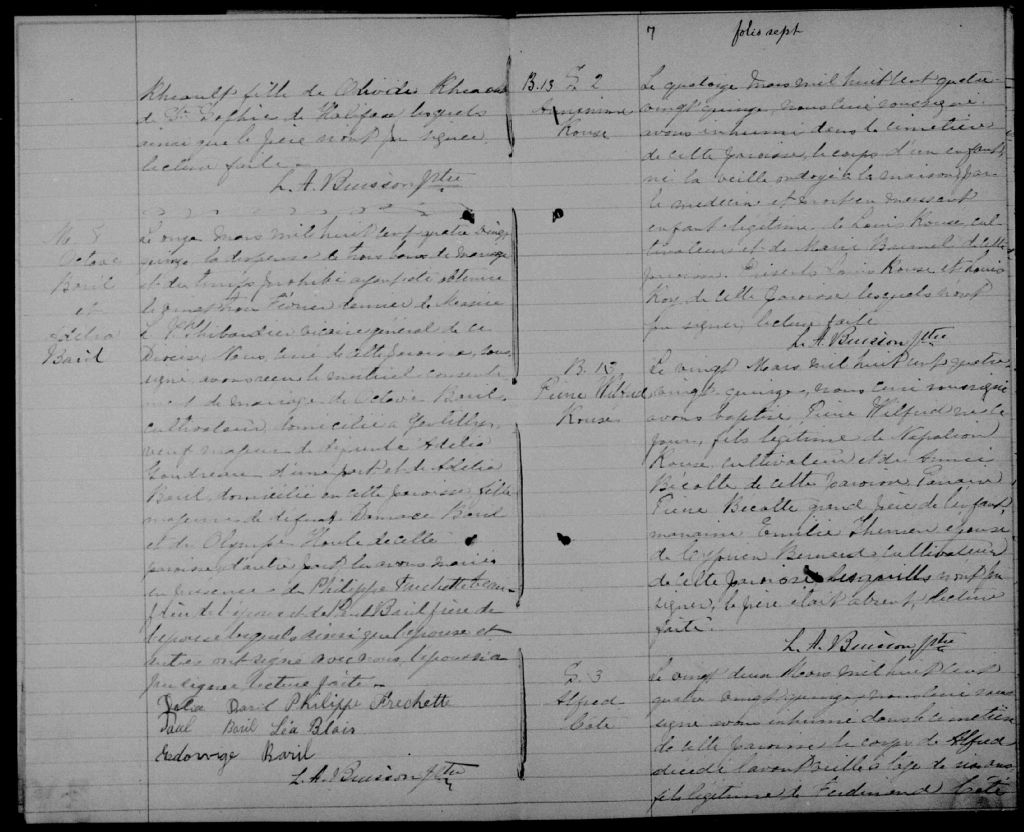 fille de Olivide
de St Sophie de Halifax lesquels
ainsi que le père n'ont pu signer
lecture faite.
L. A. Buisson Ptre
M. 
Octave
Baril
et
Adélia
Baril
Le onze Mars mil huit cent quatre vingt
quinze, la dispense de trois bans de mariage
et du temps prohibé ayant été obtenue
le vingt trois Février dernier de Messire
vicaire général de ce
Diocèse, Nous, curé de cette paroisse, sous
signé, avons reçu le mutuel consente
ment de mariage de Octave Baril
cultivateur domicilié à Gentilly,
veuf majeur de défunte Adélia
d'une part et de Adélia
Baril, domiciliée en cette paroisse, fille
majeure de défunt Damase Baril
et de Olympe Houle de cette
paroisse d'autre part, les avons mariés
en présence de Philippe Frechette beau
frère de l'époux et de Paul Baril frère de
l'épouse lesquels ainsi que l'épouse et
autres ont signé avec nous, l'époux n'a
pu signer lecture faite.
Délia Baril Philippe Frechette
Paul Baril Léa Blais
Edowge Baril
L. A. Buisson Ptre
7 folio sept
B.13 S. 2
Anonime
Rouse
Le quatorze Mars mil huit cent quatre
vingt quinze, nous curé soussigné
avons inhumé dans le cimetière
de cette paroisse, le corps d'un enfant,
né la veille ondoyé à la maison par
le médecin et mort en naissant
enfant légitime de Louis Rouse, cul
tivateur et de Marie de cette
paroisse. Présents Louis Rouse et Louis
Roy de cette paroisse lesquels n'ont
pu signer, lecture faite
L. A. Buisson Ptre
B. 15
Pierre Wilfred
Rouse
Le vingt Mars mil huit cent quatre
vingt quinze, nous curé soussigné
avons baptisé Pierre Wilfred né ce
jour, fils légitime de Napoléon
Rouse cultivateur et de
Bécotte de cette paroisse Parrain
Pierre Becotte grand père de l'enfant,
marraine Emilie Therrien épouse
de cultivateur
de cette paroisse lesquels n'ont pu
signer, le père était absent, lecture
faite.
L. A. Buisson Ptre
S. 3
Alfred
Coté
Le vingt deux Mars mil huit cent
quatre vingt quinze, nous curé sous
signé avons inhumé dans le cimetière
de cette paroisse le corps de Alfred
décédé l'avant Veille à l'âge de
fils légitime de Ferdinand Côté